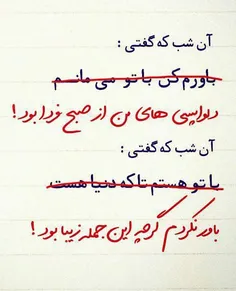 آن شب که گفتی :
باورم کن با تو می مانم
دلواپسی های من از صبح فردا بود !
آن شب که گفتی :
با تو هستم تا که دنیا هست
باور نکردم گرچه این جمله زیبا بود !